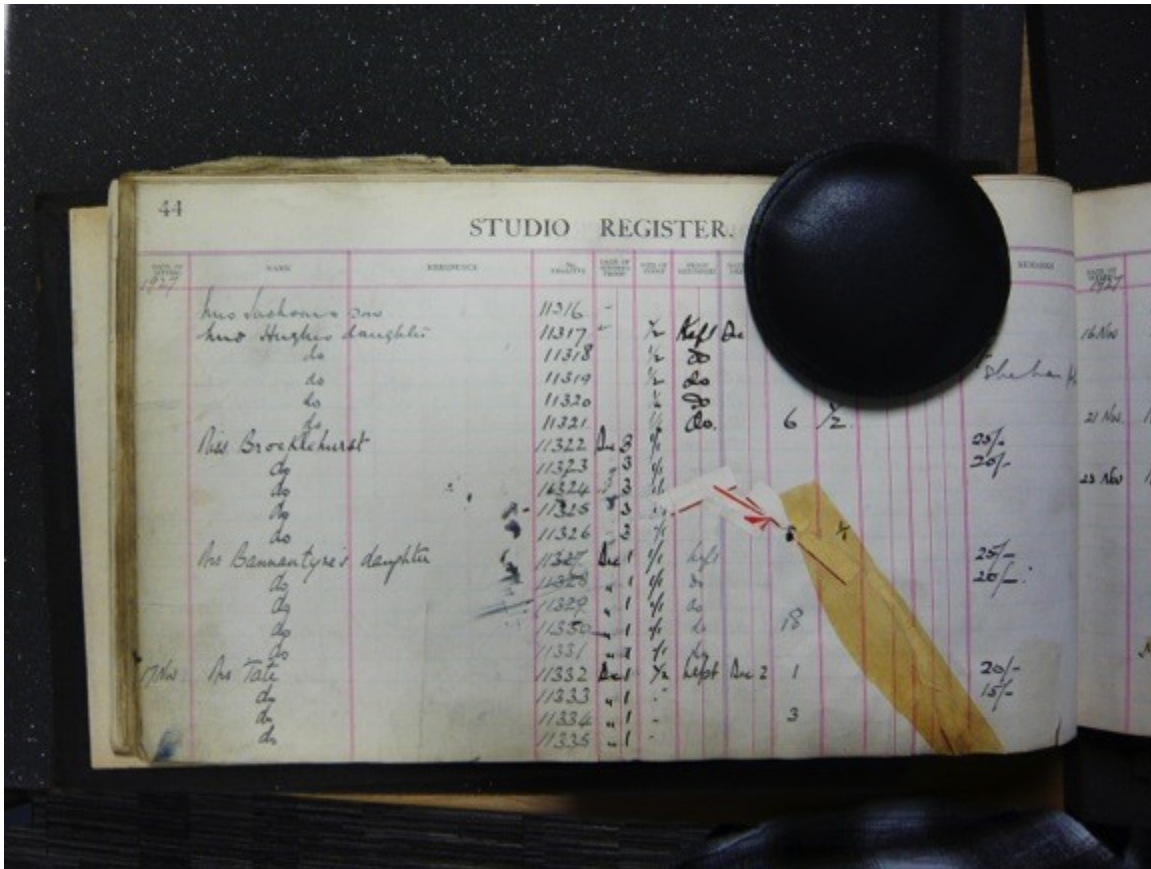 44
STUDIO REGISTER.
NAME REFERENCE REMARKS
1927 1927
Mrs son 11316 -
Mrs Hughes daughter 11317 " 1/2 Kept Dec 16 Nov
do 11318 1/2 do
do 11319 1/2 do
do 11320 1/2 do
do 11321 1/2 do. 6 1/2 21 Nov.
Miss Brocklehurst 11322 Dec 3 1/1 25/-
do 11323 " 3 1/1 20/-
do 11324 " 3 1/1 23 Nov
do 11325 3 1/1
do 11326 - 3 1/1 1/1
Mrs Bannantyne's daughter 11327 Dec 1 1/1 kept 25/-
do 11328 " 1 1/1 do 20/-
do 11329 " 1 1/1 do
do 11330 " 1 1/1 do 18
do 11331 " 1/1 do
17 Nov Mrs Tate 11332 Dec 1 1/2 kept Dec 2 1 20/-
do 11333 " 1 " 15/-
do 11334 " 1 - 3
do 11335 " 1